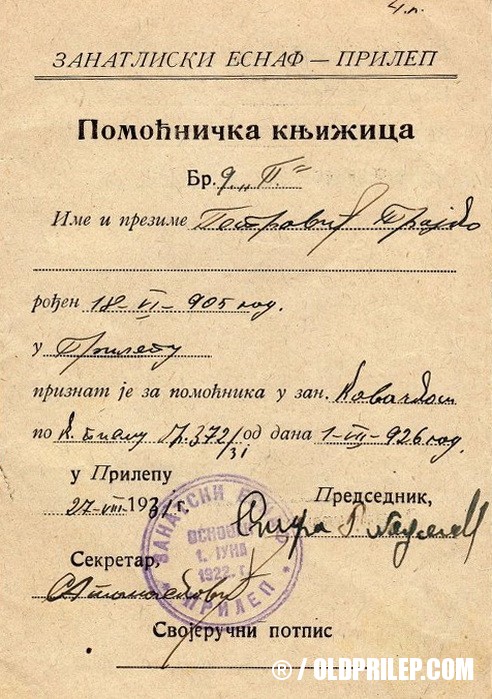 ЗАНАТЛИСКИ ЕСНАФ — ПРИЛЕП
Помоћничка књижица
Бр. 9 „П"
Име и презиме Петровић Трајко
рођен 18-VI-905 год.
у Прилепу
признат је за помоћника у зан. Ковачком
по од дана 1-III-926 год.
у Прилепу
27-VIII-1931 г.
Председник,
ОСНОВАН
1. ЈУНА
1922. Г.
ПРИЛЕП
Секретар,
Својеручни потпис
® / OLDPRILEP.COM